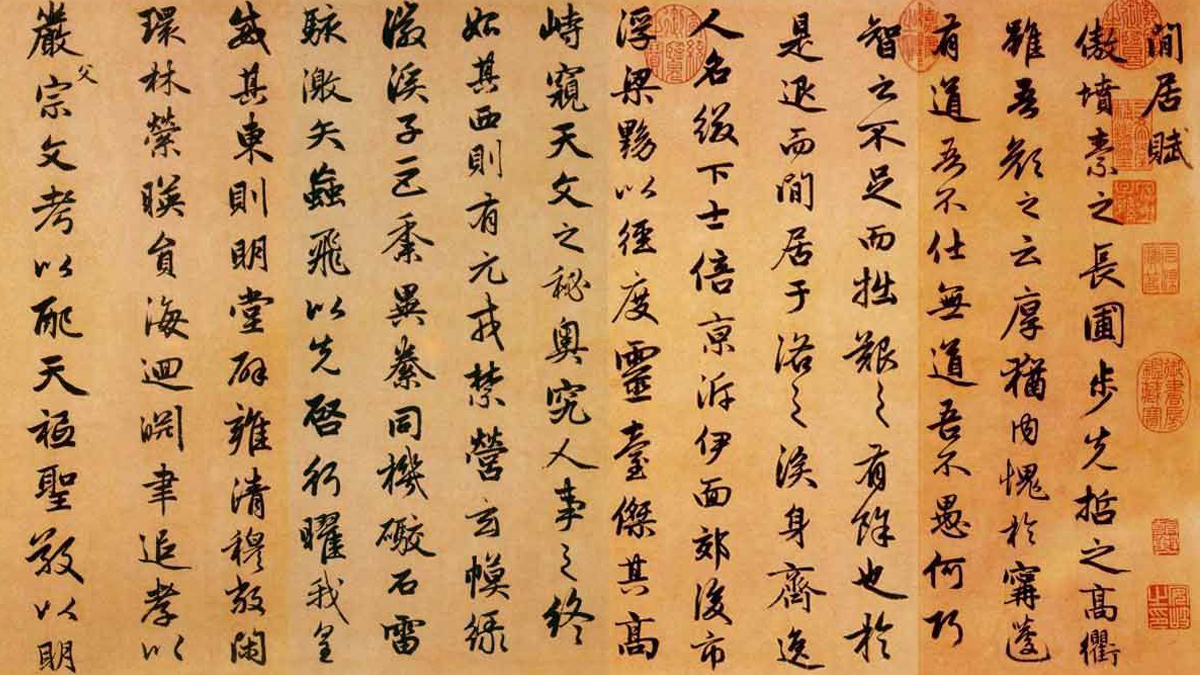 閒居賦
傲墳素之長圃步先哲之高衢
雖吾顏之云厚猶內愧於甯蘧
有道吾不仕無道吾不愚何巧
智之不足而拙艱之有餘也於
是退而閒居于洛之涘身齊逸
人名綴下士倍京泝伊面郊後市
浮梁黝以徑度靈臺傑其高
峙窺天文之秘奧究人事之終
始其西則有元戎禁營玄幙綠
徽溪子巨黍異絭同機礮石雷
駭激矢蝱飛以先啓行曜我皇
威其東則明堂辟雍清穆敞閑
環林縈暎員海迴淵聿追孝以
嚴父宗文考以配天祗聖敬以明
御書房鑑藏寶